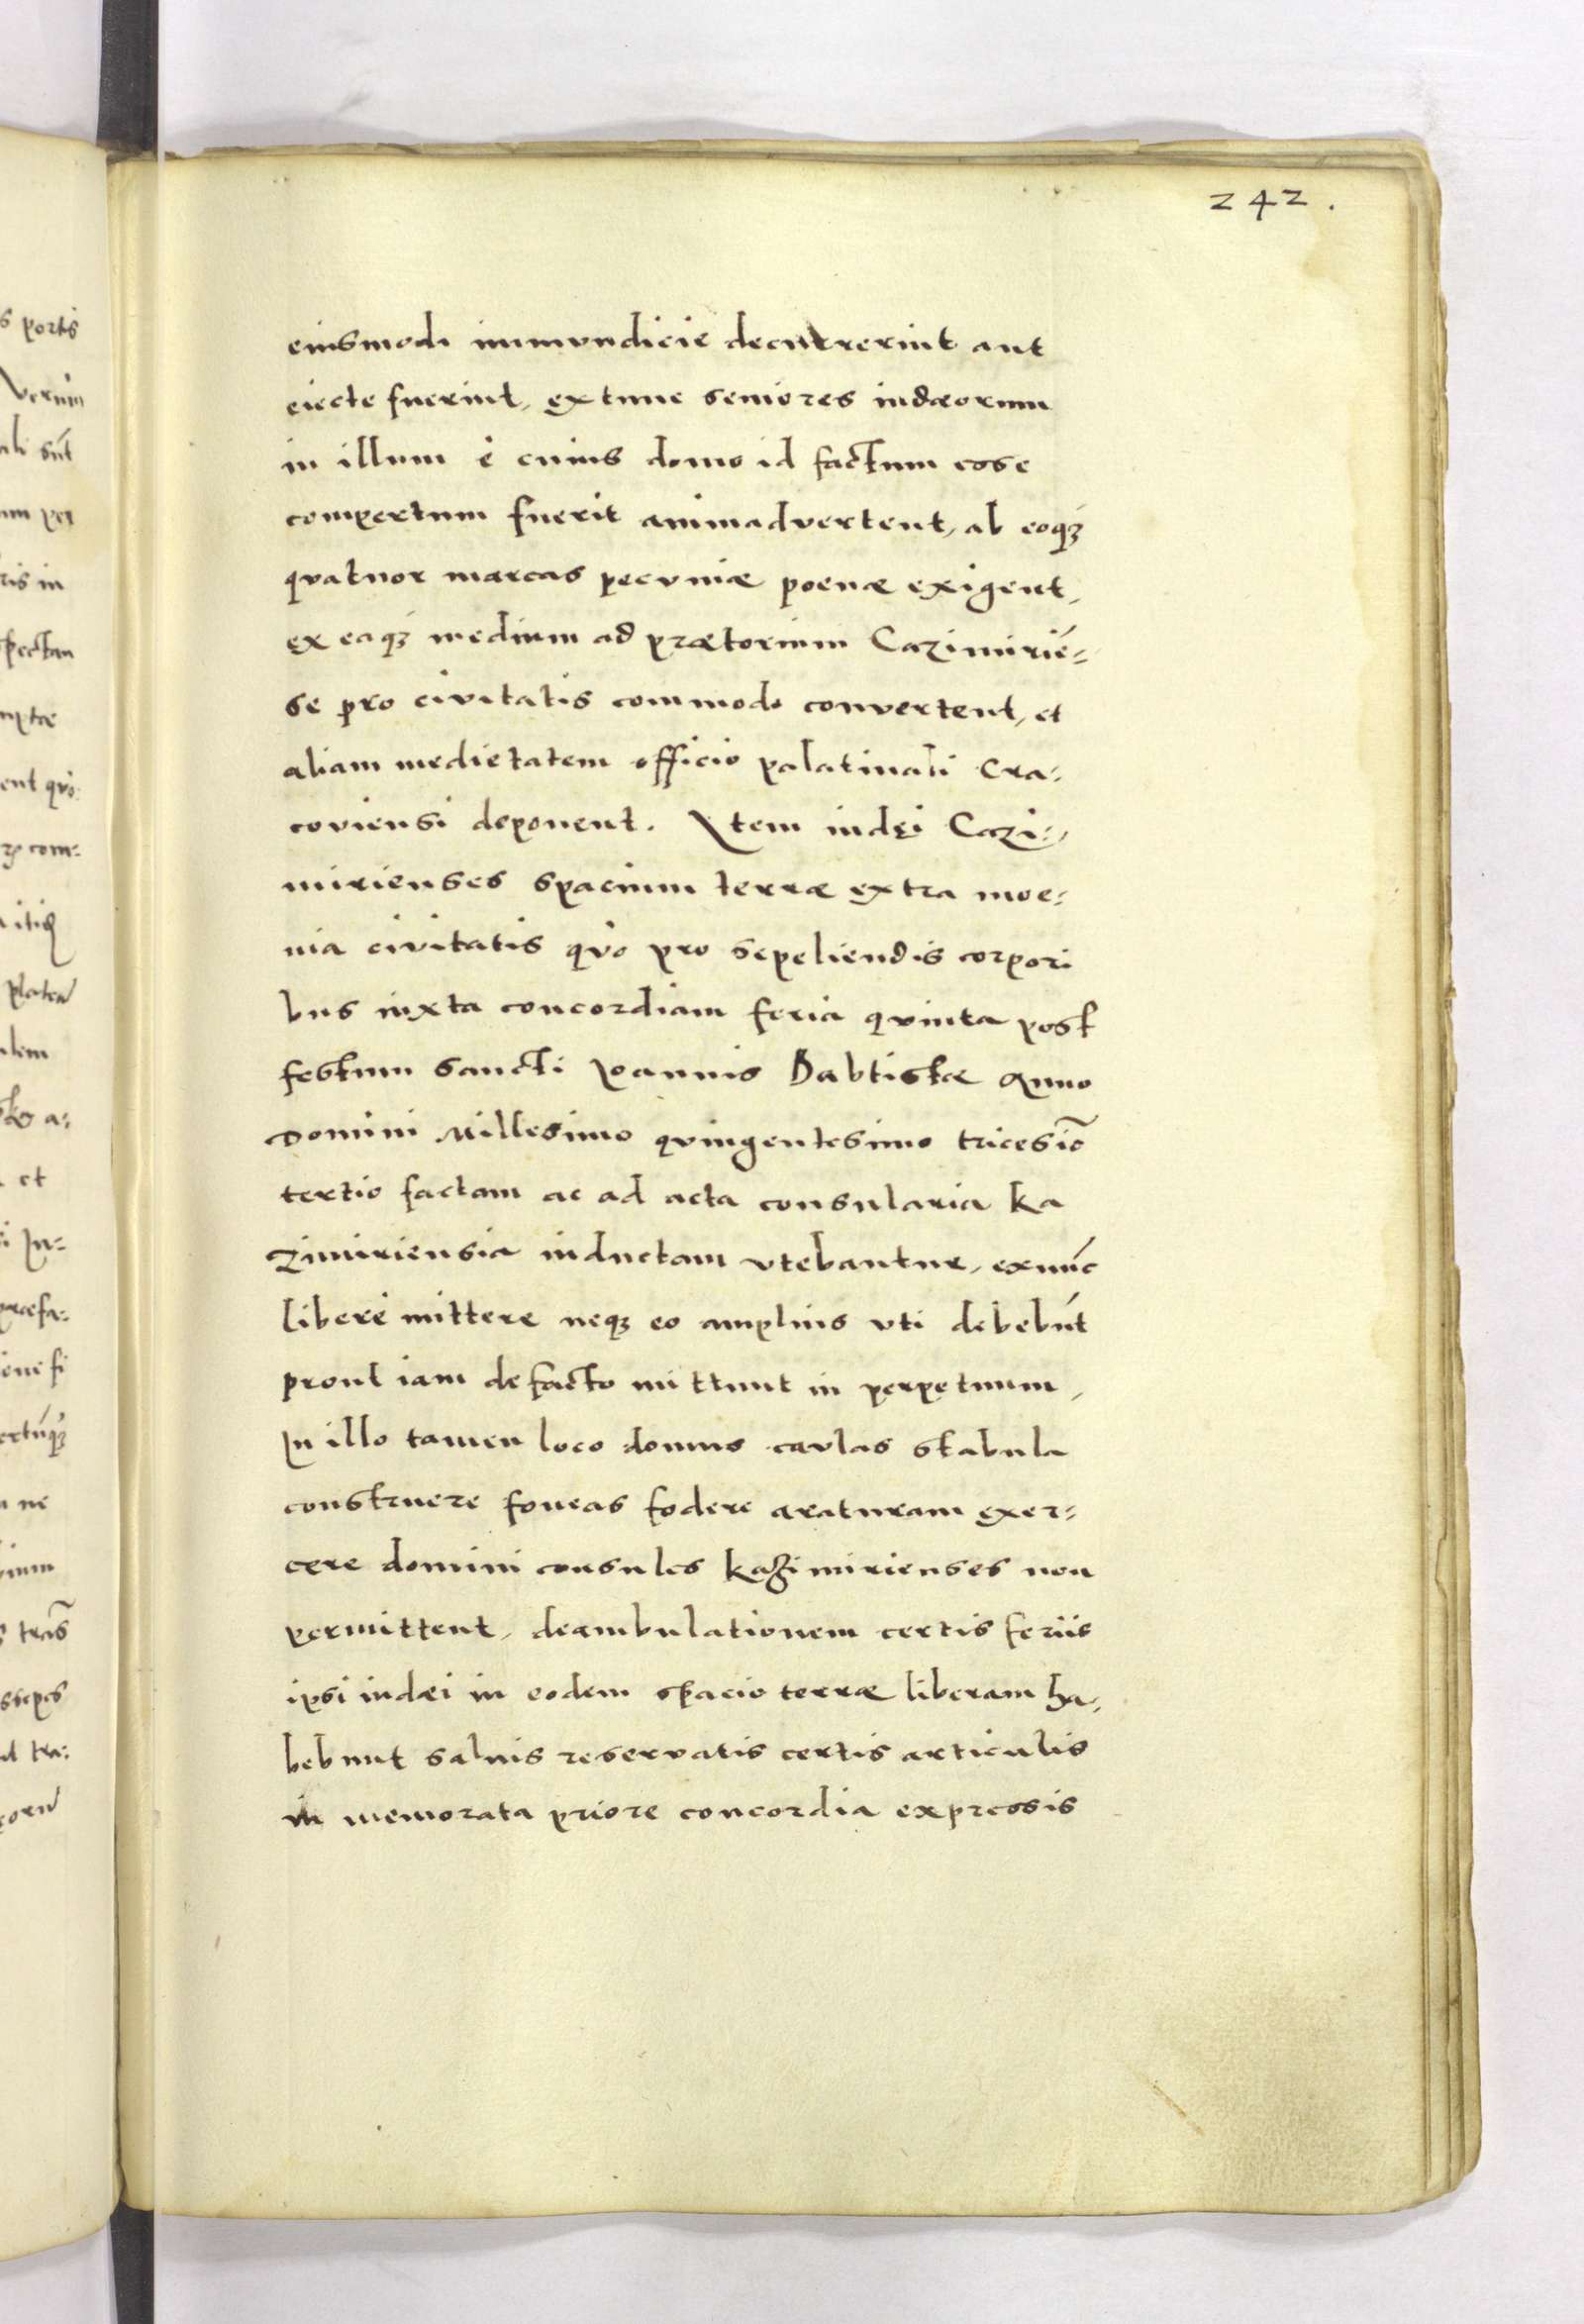 242.
eiusmodi immundicie decurrerint aut
eiecte fuerint, extunc seniores iudæorum
in illum è cuius domo id factum esse
compertum fuerit animadvertent, ab eoqꝫ
qvatuor marcas pecuniæ poenæ exigent,
ex eaqꝫ medium ad prætorium Cazimiriē-
se pro civitatis commodo convertent, et
aliam medietatem officio palatinali Cra-
coviensi deponent. Item iudęi Cazi-
mirienses spacium terræ extra moe-
nia civitatis qvo pro sepeliendis corpori
bus iuxta concordiam feria qvinta post
festum sancti Joannis Babtistæ Anno
Domini Millesimo qvingentesimo tricesiō
tertio factam ac ad acta consularia Ka
zimiriensia inductam vtebantur, exnūc
liberè mittere neqꝫ eo amplius vti debebūt
prout iam de facto mittunt in perpetuum,
In illo tamen loco domus caulas stabula
construere foueas fodere araturam exer-
cere domini consules Kazimirienses non
permittent, deambulationem certis feriis
ipsi iudæi in eodem spacio terræ liberam ha-
bebunt saluis reservatis certis articulis
in memorata priore concordia expressis
s portis
Verùm
ali sūt
um per
ris in
spectan
ent qvo
com-
platea
a-
et
i Jn-
præfa-
ione si
ertūqꝫ
ne
trās
sepes
tra-